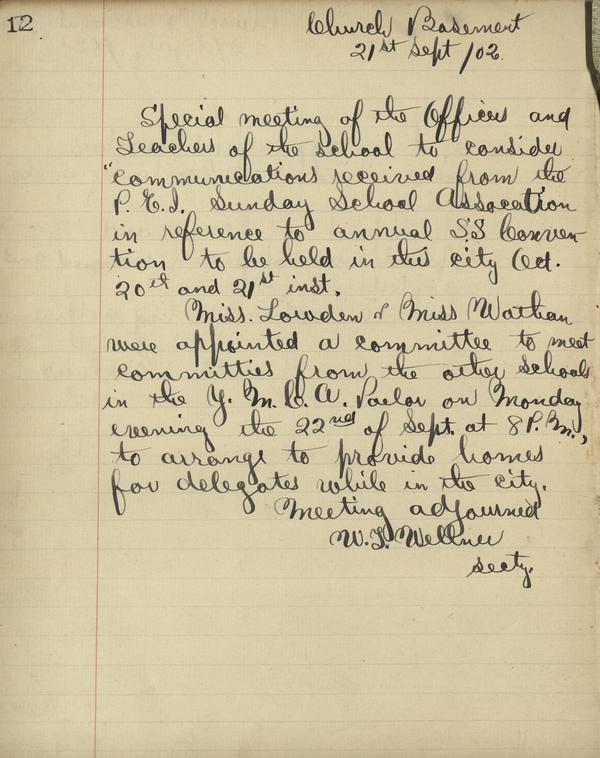 12
Church Basement
21st Sept /02
Special meeting of the Officers and
Teachers of the school to consider
"communications received from the
P. E. I. Sunday School Association
in reference to annual SS Conven-
tion to be held in this city Oct.
20th and 21st inst.
Miss. Lowden & Miss Wathan
were appointed a committee to meet
committies from the other schools
in the Y. M. C. A. Parlor on Monday
evening the 22nd of Sept. at 8 P.M.,
to arrange to provide homes
for delegates while in the city.
Meeting adjourned
W. L. Wellner
secty.